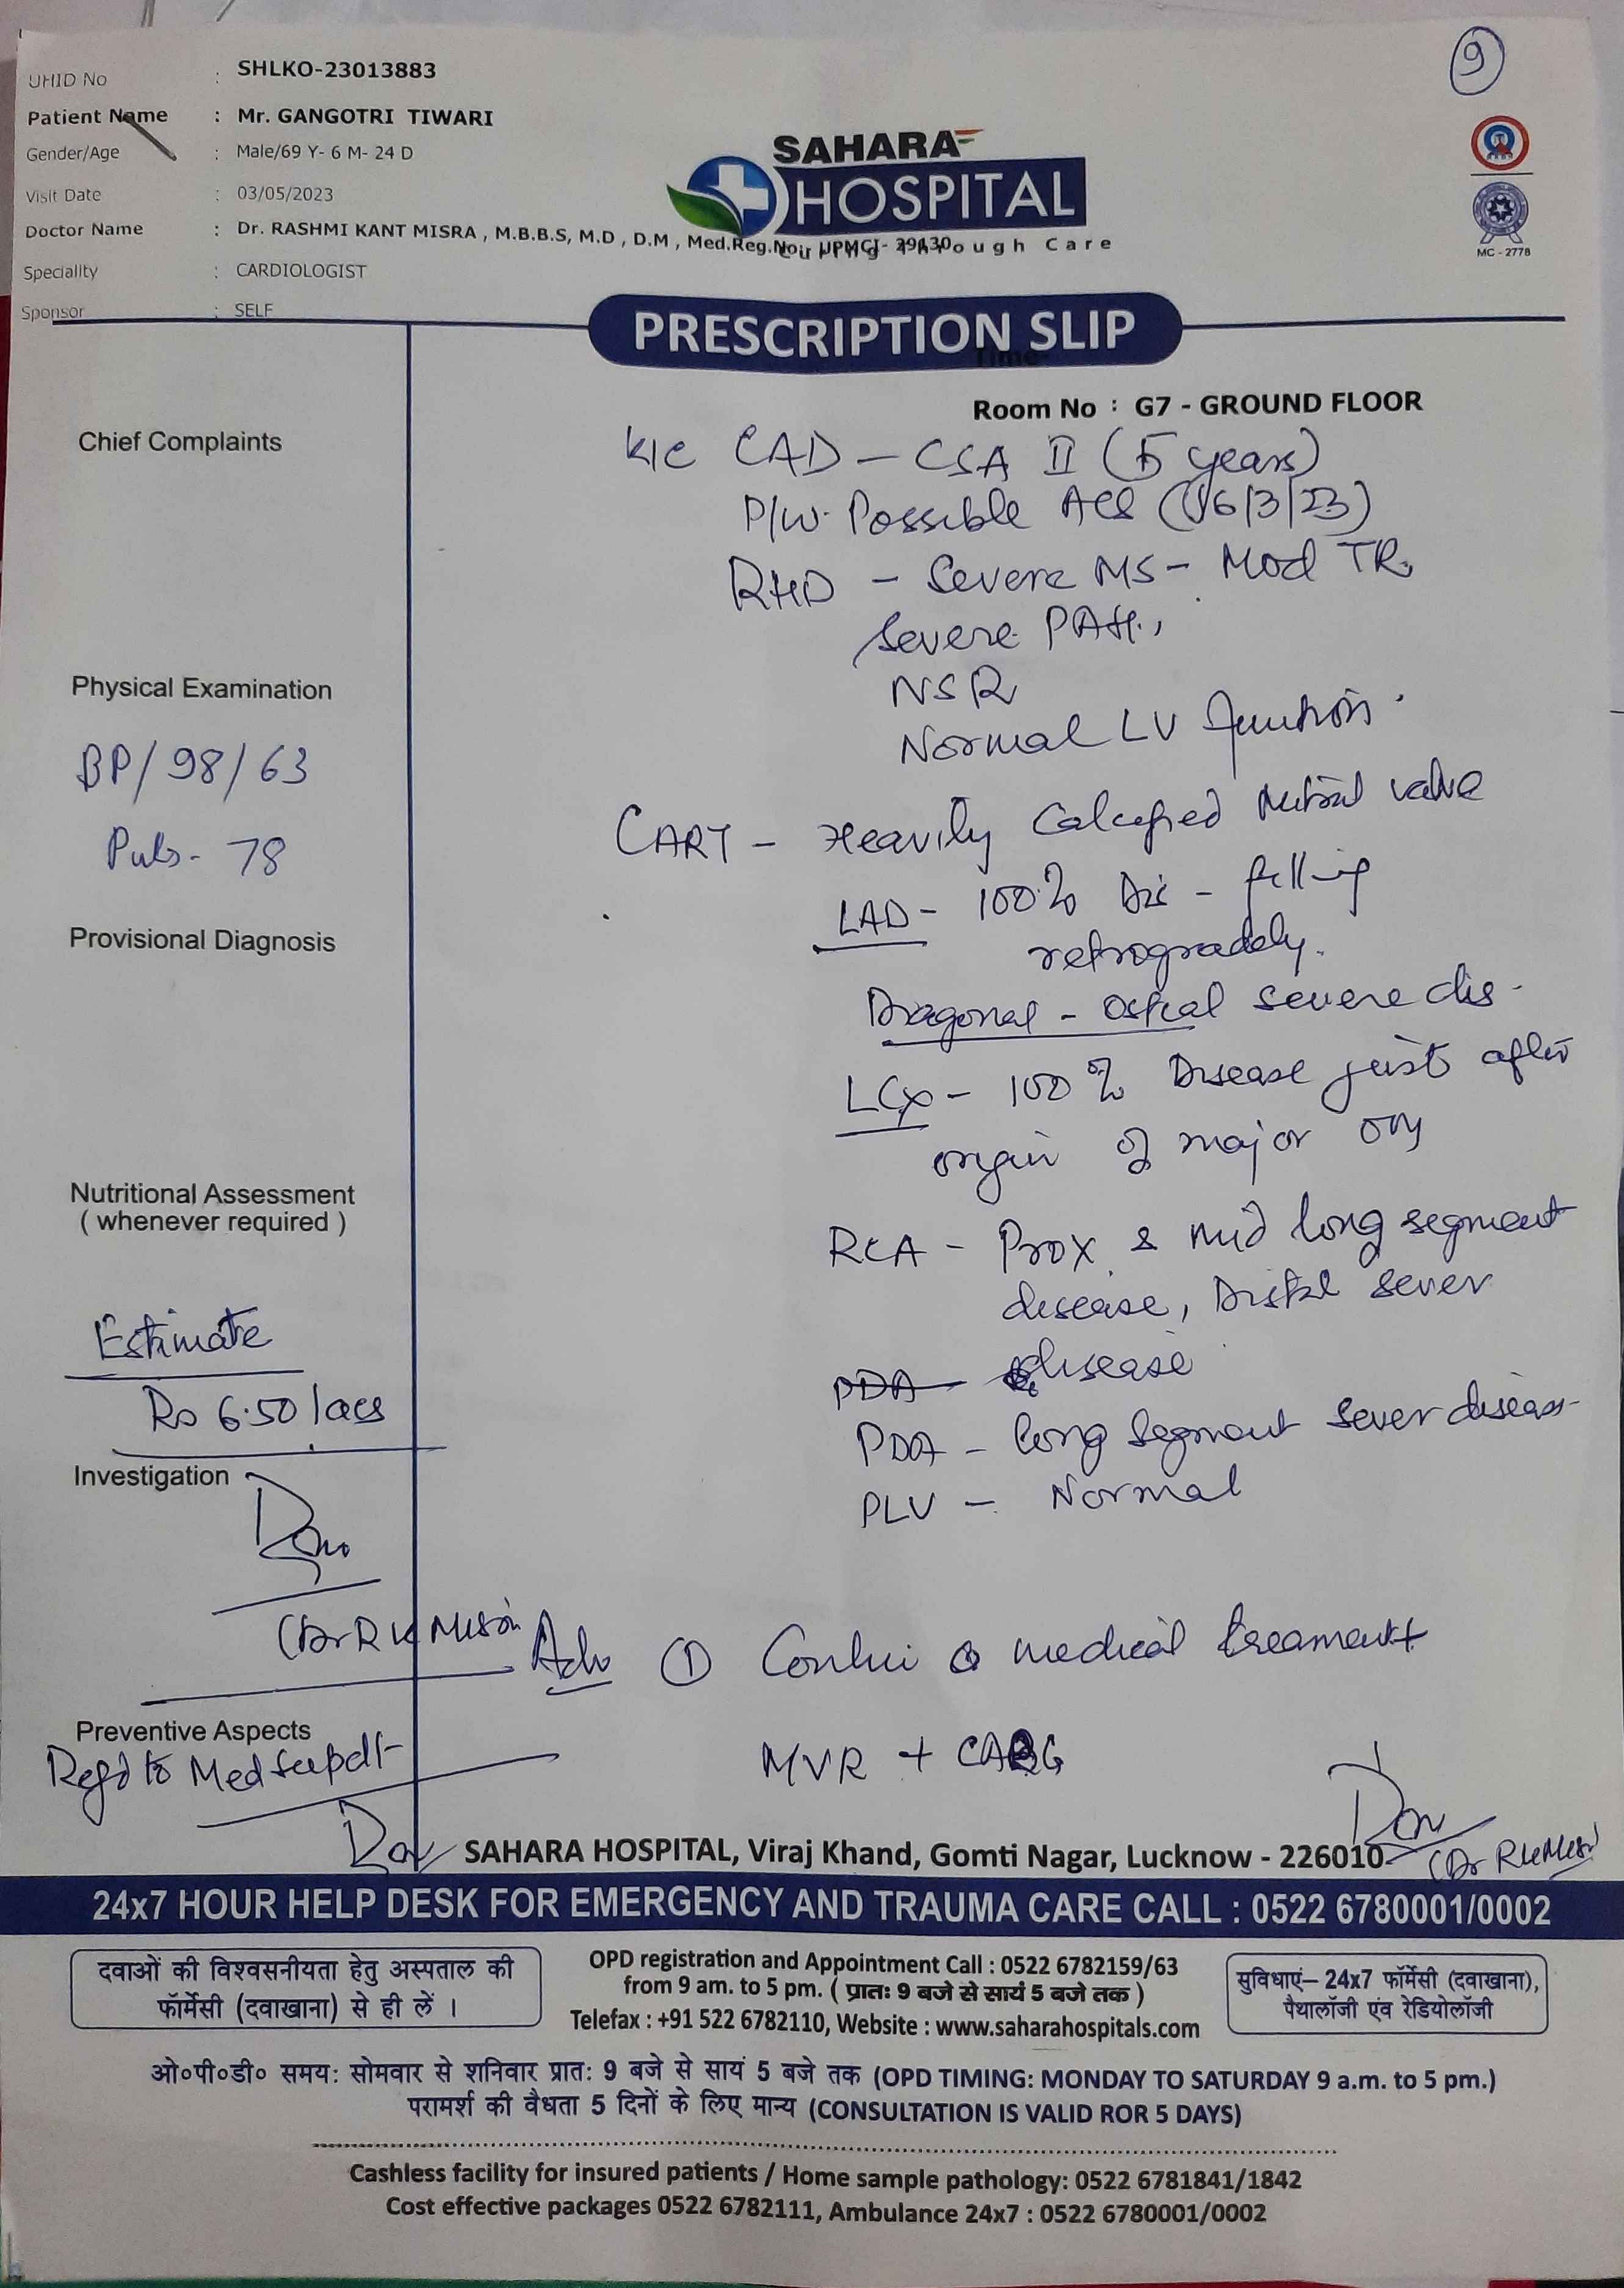 9
UHID No : SHLKO-23013883
Patient Name : Mr. GANGOTRI TIWARI
Gender/Age : Male/69 Y- 6 M- 24 D
Visit Date : 03/05/2023
Doctor Name : Dr. RASHMI KANT MISRA , M.B.B.S, M.D , D.M , Med.Reg.No.: UPMCI- 29130
Speciality : CARDIOLOGIST
Sponsor : SELF
SAHARA
HOSPITAL
Curing Through Care
MC - 2778
PRESCRIPTION SLIP
Time-
Room No : G7 - GROUND FLOOR
Chief Complaints
K/C CAD - CSA II (5 years)
P/W. Possible ACS (16/3/23)
RHD - Severe MS - Mod TR.
Severe PAH.,
NSR
Normal LV function.
Physical Examination
BP/98/63
Puls- 78
CART - Heavily Calcified Mitral valve
LAD - 100% Dis - filling
retrogradely.
Diagonal - Ostial severe dis.
LCx - 100% Disease just after
origin of major OM
RCA - Prox & mid long segment
disease, Distal sever
PDA - disease
PDA - long segment sever diseas-
PLV - Normal
Provisional Diagnosis
Nutritional Assessment
( whenever required )
Estimate
Rs 6.50 lacs
Investigation
(Dr R K Misra
Adv ① Continue medical treament
MVR + CABG
Preventive Aspects
Regd to Med Supdt-
(Dr RK Misra
SAHARA HOSPITAL, Viraj Khand, Gomti Nagar, Lucknow - 226010
24x7 HOUR HELP DESK FOR EMERGENCY AND TRAUMA CARE CALL : 0522 6780001/0002
दवाओं की विश्वसनीयता हेतु अस्पताल की
फॉर्मेसी (दवाखाना) से ही लें ।
OPD registration and Appointment Call : 0522 6782159/63
from 9 am. to 5 pm. ( प्रातः 9 बजे से सायं 5 बजे तक )
Telefax : +91 522 6782110, Website : www.saharahospitals.com
सुविधाएं– 24x7 फॉर्मेसी (दवाखाना),
पैथालॉजी एंव रेडियोलॉजी
ओ०पी०डी० समय: सोमवार से शनिवार प्रात: 9 बजे से सायं 5 बजे तक (OPD TIMING: MONDAY TO SATURDAY 9 a.m. to 5 pm.)
परामर्श की वैधता 5 दिनों के लिए मान्य (CONSULTATION IS VALID ROR 5 DAYS)
Cashless facility for insured patients / Home sample pathology: 0522 6781841/1842
Cost effective packages 0522 6782111, Ambulance 24x7 : 0522 6780001/0002